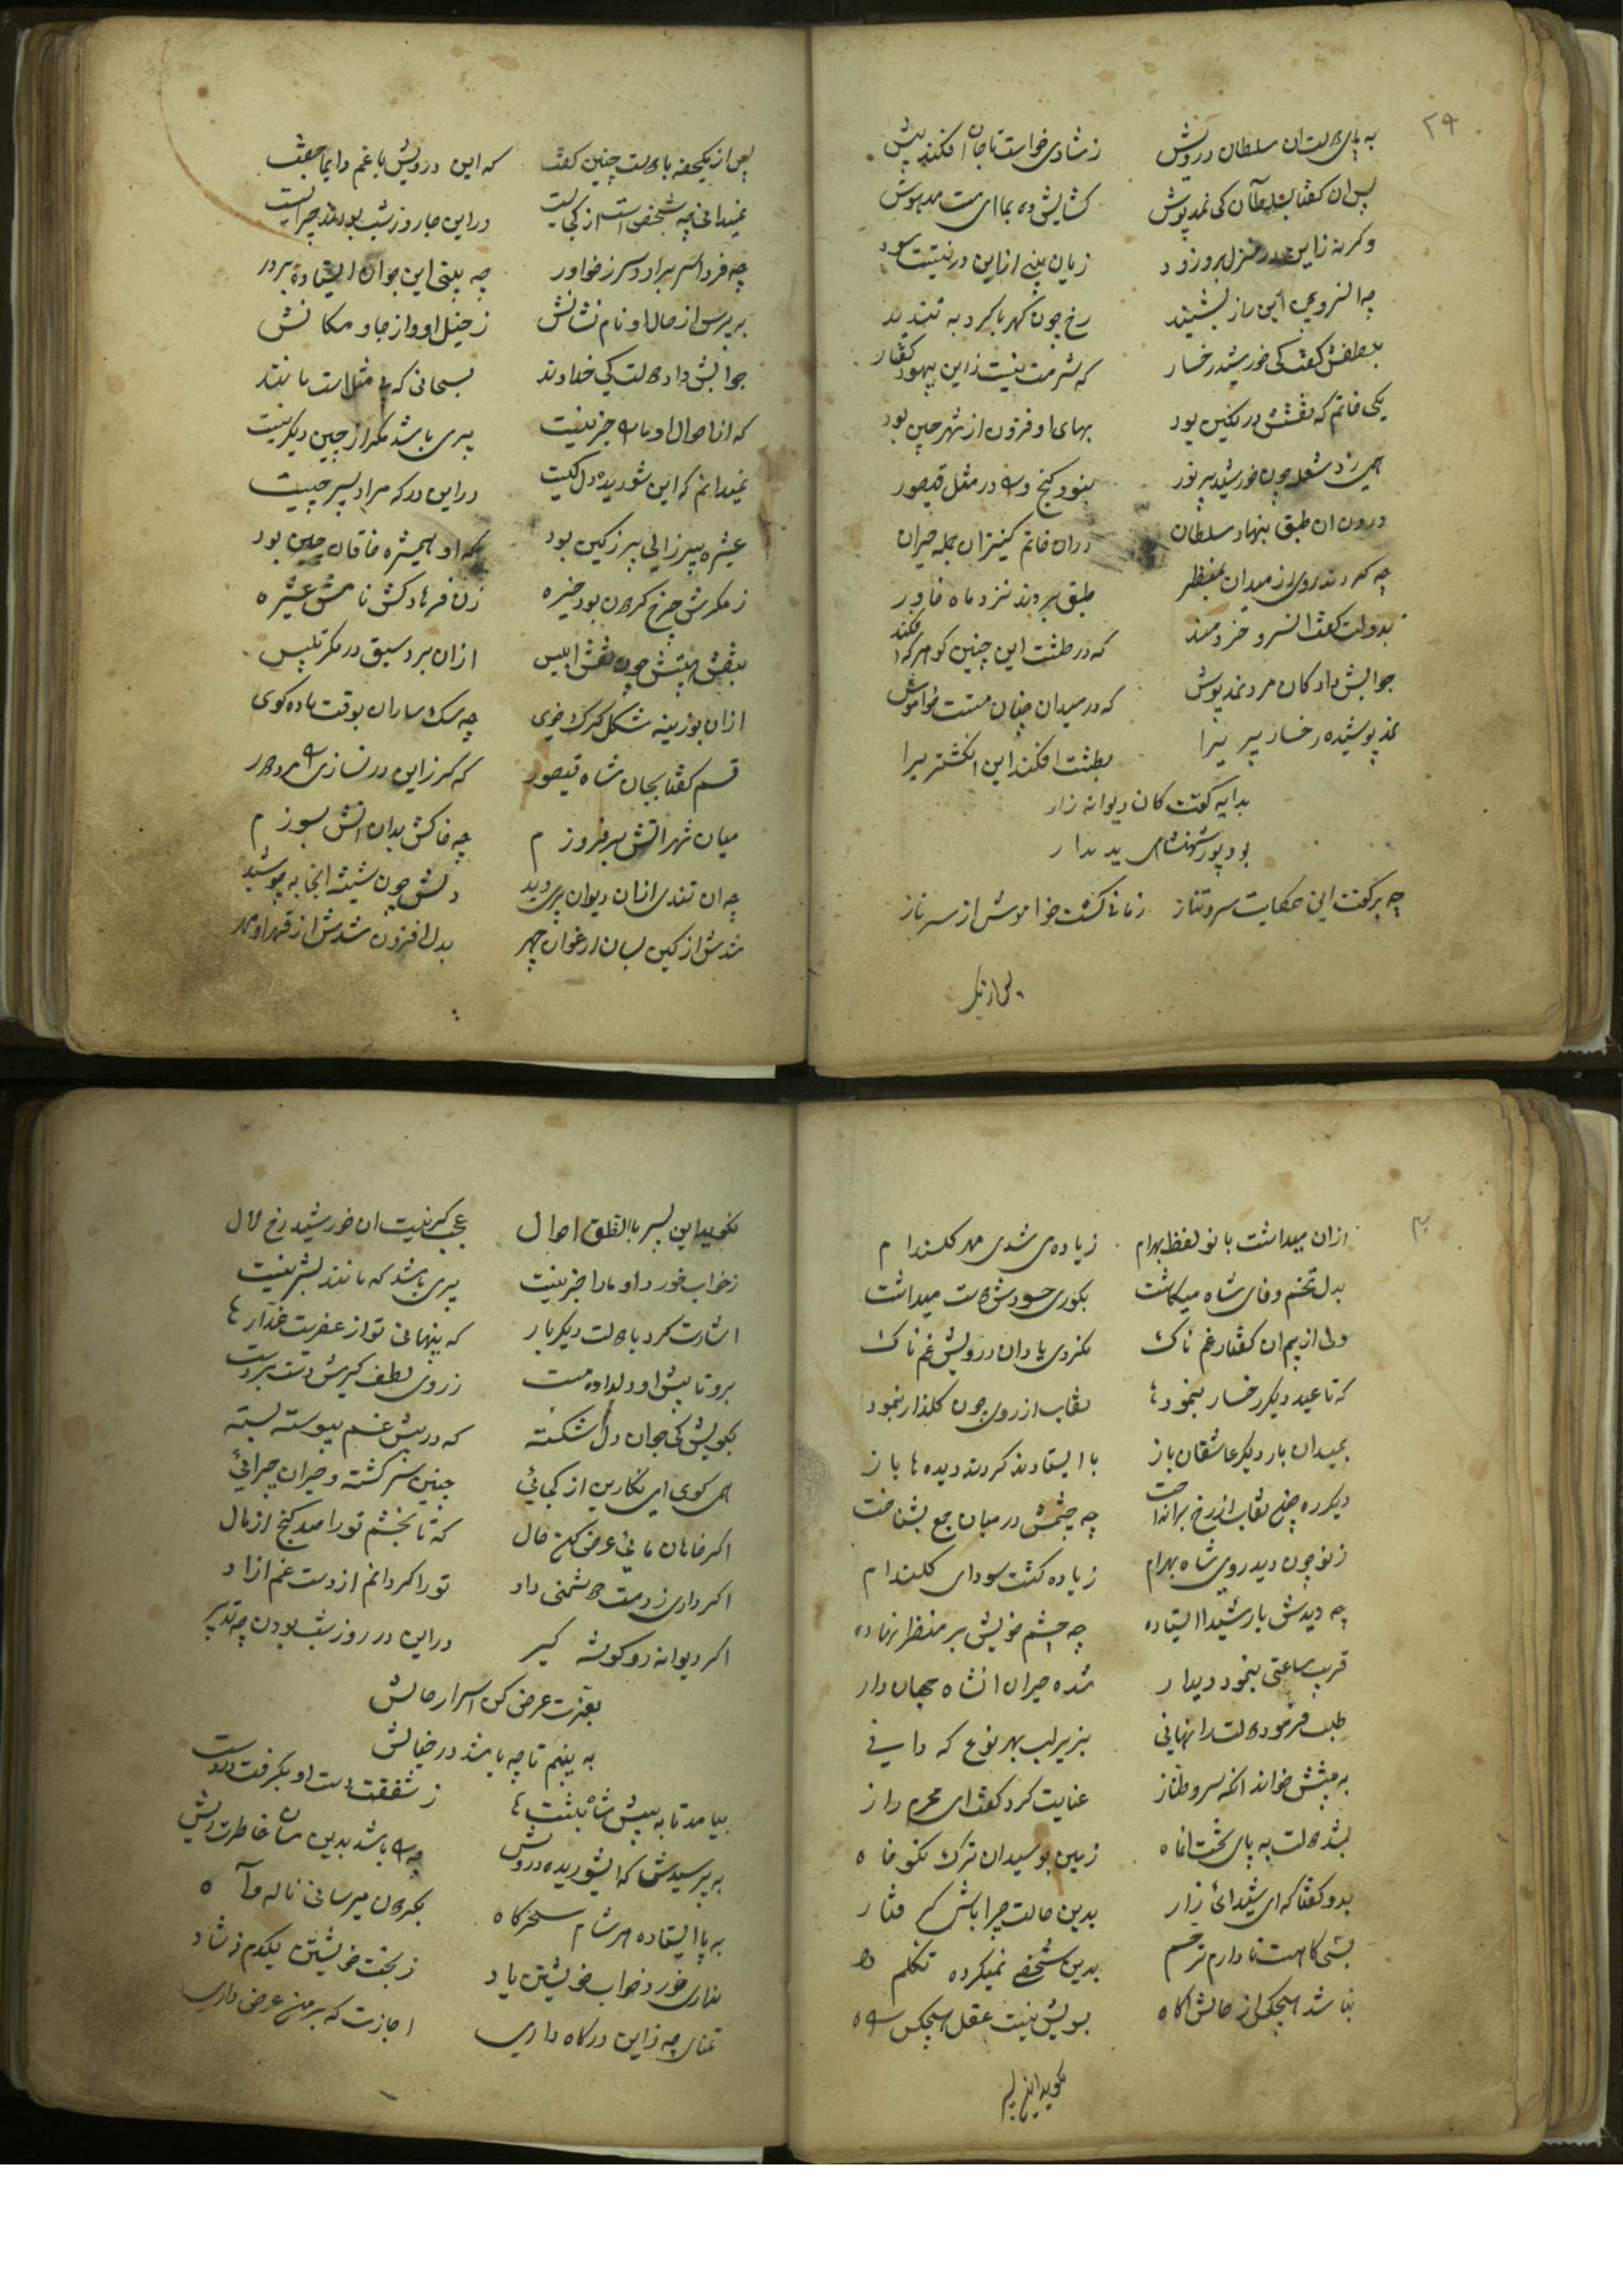 ۲۹
به پای دولت ان سلطان درویش زشادی خواست تا جان افکند پیش
پس ان گفتا سلطان کی نمدپوش کشایش ده بما ای مست مدهوش
وکرنه زاین در منزل برو زود زیان بینی ازاین در نیستت سود
چه النرو این راز بشنید رخ چون کهربا کرد به تندید
بلطفش گفت کی خورشید رخسار که شرمت نیست زاین بیهود گفتار
یکی خاتم که نقشش در نکین بود بهای او فزون از شهر چین بود
همی زد شعله چون خورشید پر نور بنود گنج در مثل قیصور
درون ان طبق بنهاد سلطان دران خاتم کنیزان جمله حیران
چه کردند روی از میدان بمنظر طبق بردند نزد ماه خاور
بدولت گفت النسرو خردمند که در طشت این چنین کوهر که افکند
جوابش داد کان مرد نمدپوش که در میدان چنان مست خواموش
نمد پوشیده رخسار پریرا بطشت افکند این انکشتریرا
بدایه گفت کان دیوانه زار
بود پور شهنشاهی پدیدار
چه برگفت این حکایت سرو تناز زمانی گشت خواموش از سر ناز
پس از یک
پس از یکحفه با دولت چنین گفت که این درویش با غم دایما جفت
نمیدانی چه شخص است از کجا ایست دراین جا روز شب بودند چرا ایست
چه فردا سر برارد سر ز خواور چه بینی این جوان ایستاده بر در
به پرس از حال او نام نشانش زخیل او و از جا و مکانش
جوابش داد دولت کی خداوند بسحانی که بی مثل است مانند
که از احوال او مارا خبر نیست پری باشد مگر از جین دیگر نیست
نمیدانم که این شوریده دل کیست دراین درکه مراد پسر چیست
عشیره پیرزالی پر زکین بود که او همیشره خاقان چین بود
زمکرش چرخ گردون بود خیره زن فرهادکش نامش عشیره
بنقش هیئتش چون نقش ابلیس ازان برد سبق در مکر تلبیس
ازان بوزینه شکل گرک خوی چه سک ساران بوقت یاده گوی
قسم گفتا بجان شاه قیصور که گر زاین در نسازی مرد دور
میان شهر اتش بر فروزم چه خاکش بدان اتش بسوزم
چه ان تندی ازان دیوان پری دید دلش چون شیشه انجا به جوشید
شدش از کین بسان ارغوان چهر بدل افزون شدش از قهر او مهر
۳۰
ازان میداشت بانو لفظ بهرام زیاده می شدی مهر گلندام
بدل تخم وفای شاه میکاشت بکوری حسودش دوست میداشت
ولی از بیم ان گفتار غم ناک نکردی یاد ان درویش غم ناک
که تا عید دیگر رخسار بنمود نقاب از روی چون گلزار بنمود
بمیدان بار دیگر عاشقان باز با ایستادند کردند دیده ها باز
دیگر ره چنی نقاب از رخ برانداخت چه چشمش در میان جمع بشناخت
زنو چون دید روی شاه بهرام زیاده گشت سودای گلندام
چه دیدش یار شیدا ایستاده چه چشم خویش بر منظر نهاده
قریب ساعتی بنمود دیدار شده حیران انشاه جهان دار
طلب فرمود دولت را نهانی بزیر لب بهر نوع که دانی
به پیشش خواند انکه سرو طناز عنایت کرد گفت ای محرم راز
بشد دولت به پای تخت انماه زمین بوسید ان ترک نکوخاه
بدو گفتا که ای شیدائی زار بدین حالت چرا باش گرفتار
بدین شخص نمیکرده تکلم
نباشد هیچکس از حالش اکاه بسویش نیست عقل هیچکس راه
نکوید این پسر
نکوید این پسر با الخلق احوال عجب گر نیست ان خورشید رخ لال
زخواب خورد او مارا خبر نیست پری باشد که مانند بشر نیست
اشارت کرد با دولت دیگر بار که پنهانی تو از عفریت غدار
برو تا پیش او دلداده مست زروی لطف گیرش دست بر دست
بگویش کی جوان دل شکسته که در پیش غم پیوسته بسته
همی گوی ای نگارین از کجائی چنین سرگشته و حیران چرائی
اگر خاهان مائی عرض کن حال که تا بخشم تورا صد گنج از مال
اگر داری ز دست دشمنی داد تورا گردانم از دست غم ازاد
اگر دیوانه رو گوشه گیر دراین در روز شب بودن چه تدبیر
بعزت عرض کن اسرار حالش
به بینم تا چه باشد در خیالش
بیامد تا به پیش شاه بنشست زشفقت دست او بگرفت در دست
به پرسیدش که ایشوریده درویش چه باشد بدین سان خاطرت ریش
به پا ایستاده هر شام سحرگاه بگردون میرسانی ناله و آه
نداری خورد خواب خویشتن یاد زبخت خویشتن یکدم نه شاد
تمنای چه زاین درگاه داری اجازت که بر من عرض داری